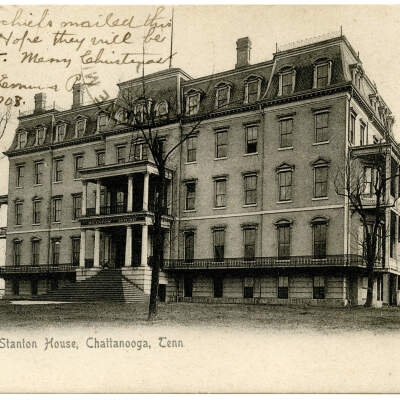 mailed this
Hope they will be
Many Christmas
Emma
1908.
Stanton House, Chattanooga, Tenn